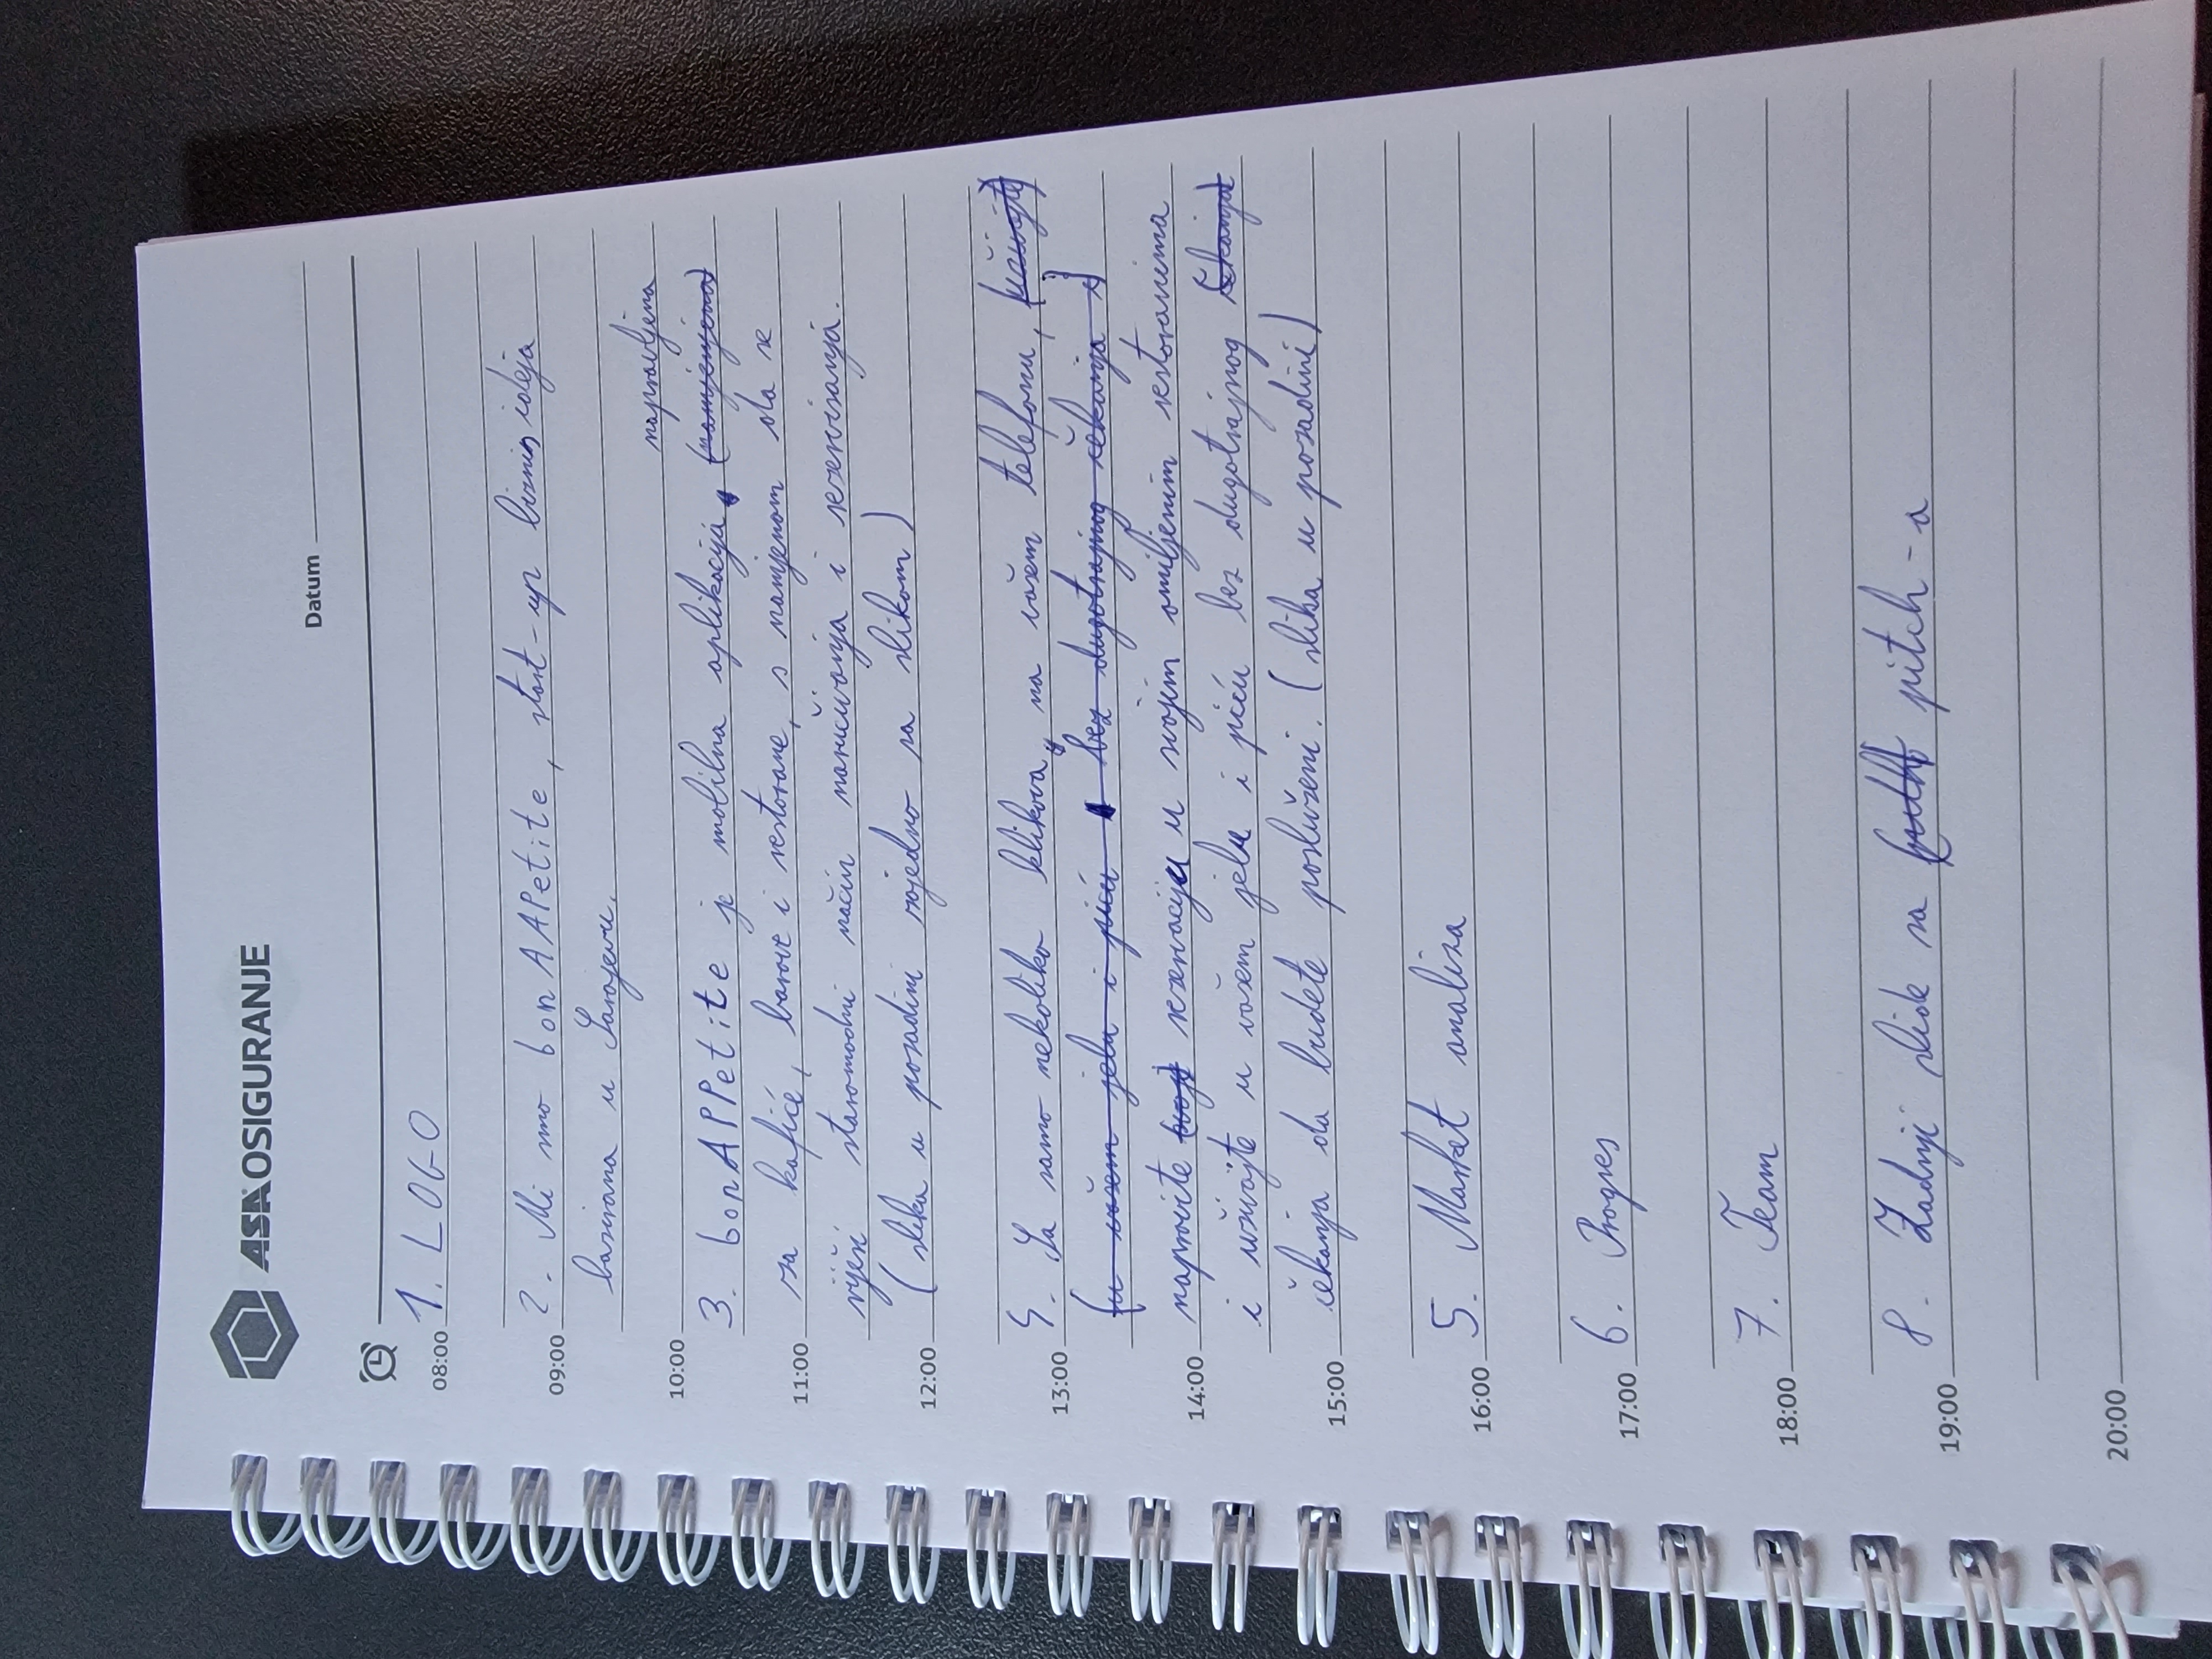 ASA OSIGURANJE
Datum
08:00 1. LOGO
09:00 2. Mi smo bonAAPetite, start-up biznis ideja
bazirana u Sarajevu.
10:00 napravljena
3. bonAPPetite je mobilna aplikacija, (namjenjena)
11:00 za kafiće, barove i restorane, s namjenom da se
riješi staromodni način naručivanja i rezervisanja.
12:00 (slika u pozadini zajedno sa slikom)
13:00 4. Sa samo nekoliko klikova, na vašem telefonu, (uživajte)
(u vašem jelu i piću bez dugotrajnog čekanja i)
14:00 napravite (svoje) rezervaciju u svojim omiljenim restoranima
i uživajte u vašem jelu i piću bez dugotrajnog čekanja
15:00 čekanja da budete posluženi. (slika u pozadini)
16:00 5. Market analiza
17:00 6. Progres
18:00 7. Team
19:00 8. Zadnji slide sa pitch-a
20:00